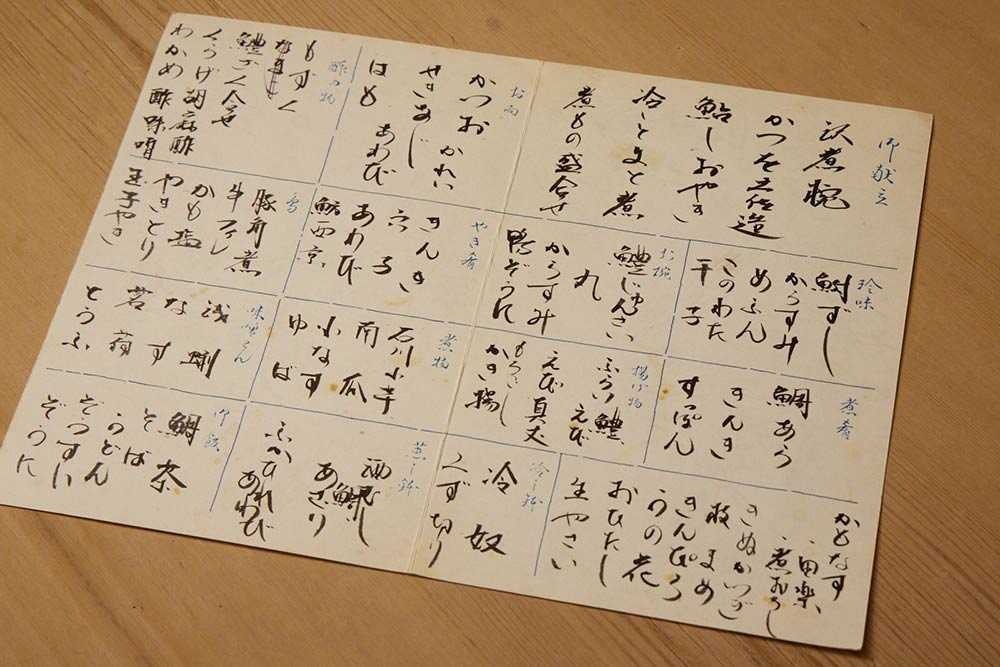 御献立
沢煮椀
かつを土佐造
鮎しおやき
冷とまと煮
煮もの盛合せ
お向
かつお かれい
せきあじ
はも あわび
酢の物
もずく
鱧ざく
くらげ胡麻酢
わかめ 酢味噌
珍味
鮒ずし
からすみ
めふん
このわた
干子
お椀
鱧じゅんさい
丸
からすみ
鴨ぞうに
やき肴
きんき
六子
あわび
鰆西京
豚角煮
牛フィレ
かも塩
やきとり
玉子やき
煮肴
鯛あら
きんき
すっぽん
揚げ物
ふらい 鱧 えび
えび真丈
もろこし
かき揚
煮物
石川小芋
南瓜
小なす
ゆば
味噌わん
浅蜊
なす
茗荷
とうふ
かもなす
・田楽
・煮おろし
きぬかつぎ
枝まめ
きんぴら
うの花
おひたし
生やさい
冷し鉢
冷奴
くず切り
蒸し鉢
酒蒸し
鯛
あさり
ふかひれ
あわび
御飯
鯛茶
そば
うどん
ぞうすい
ぞうに